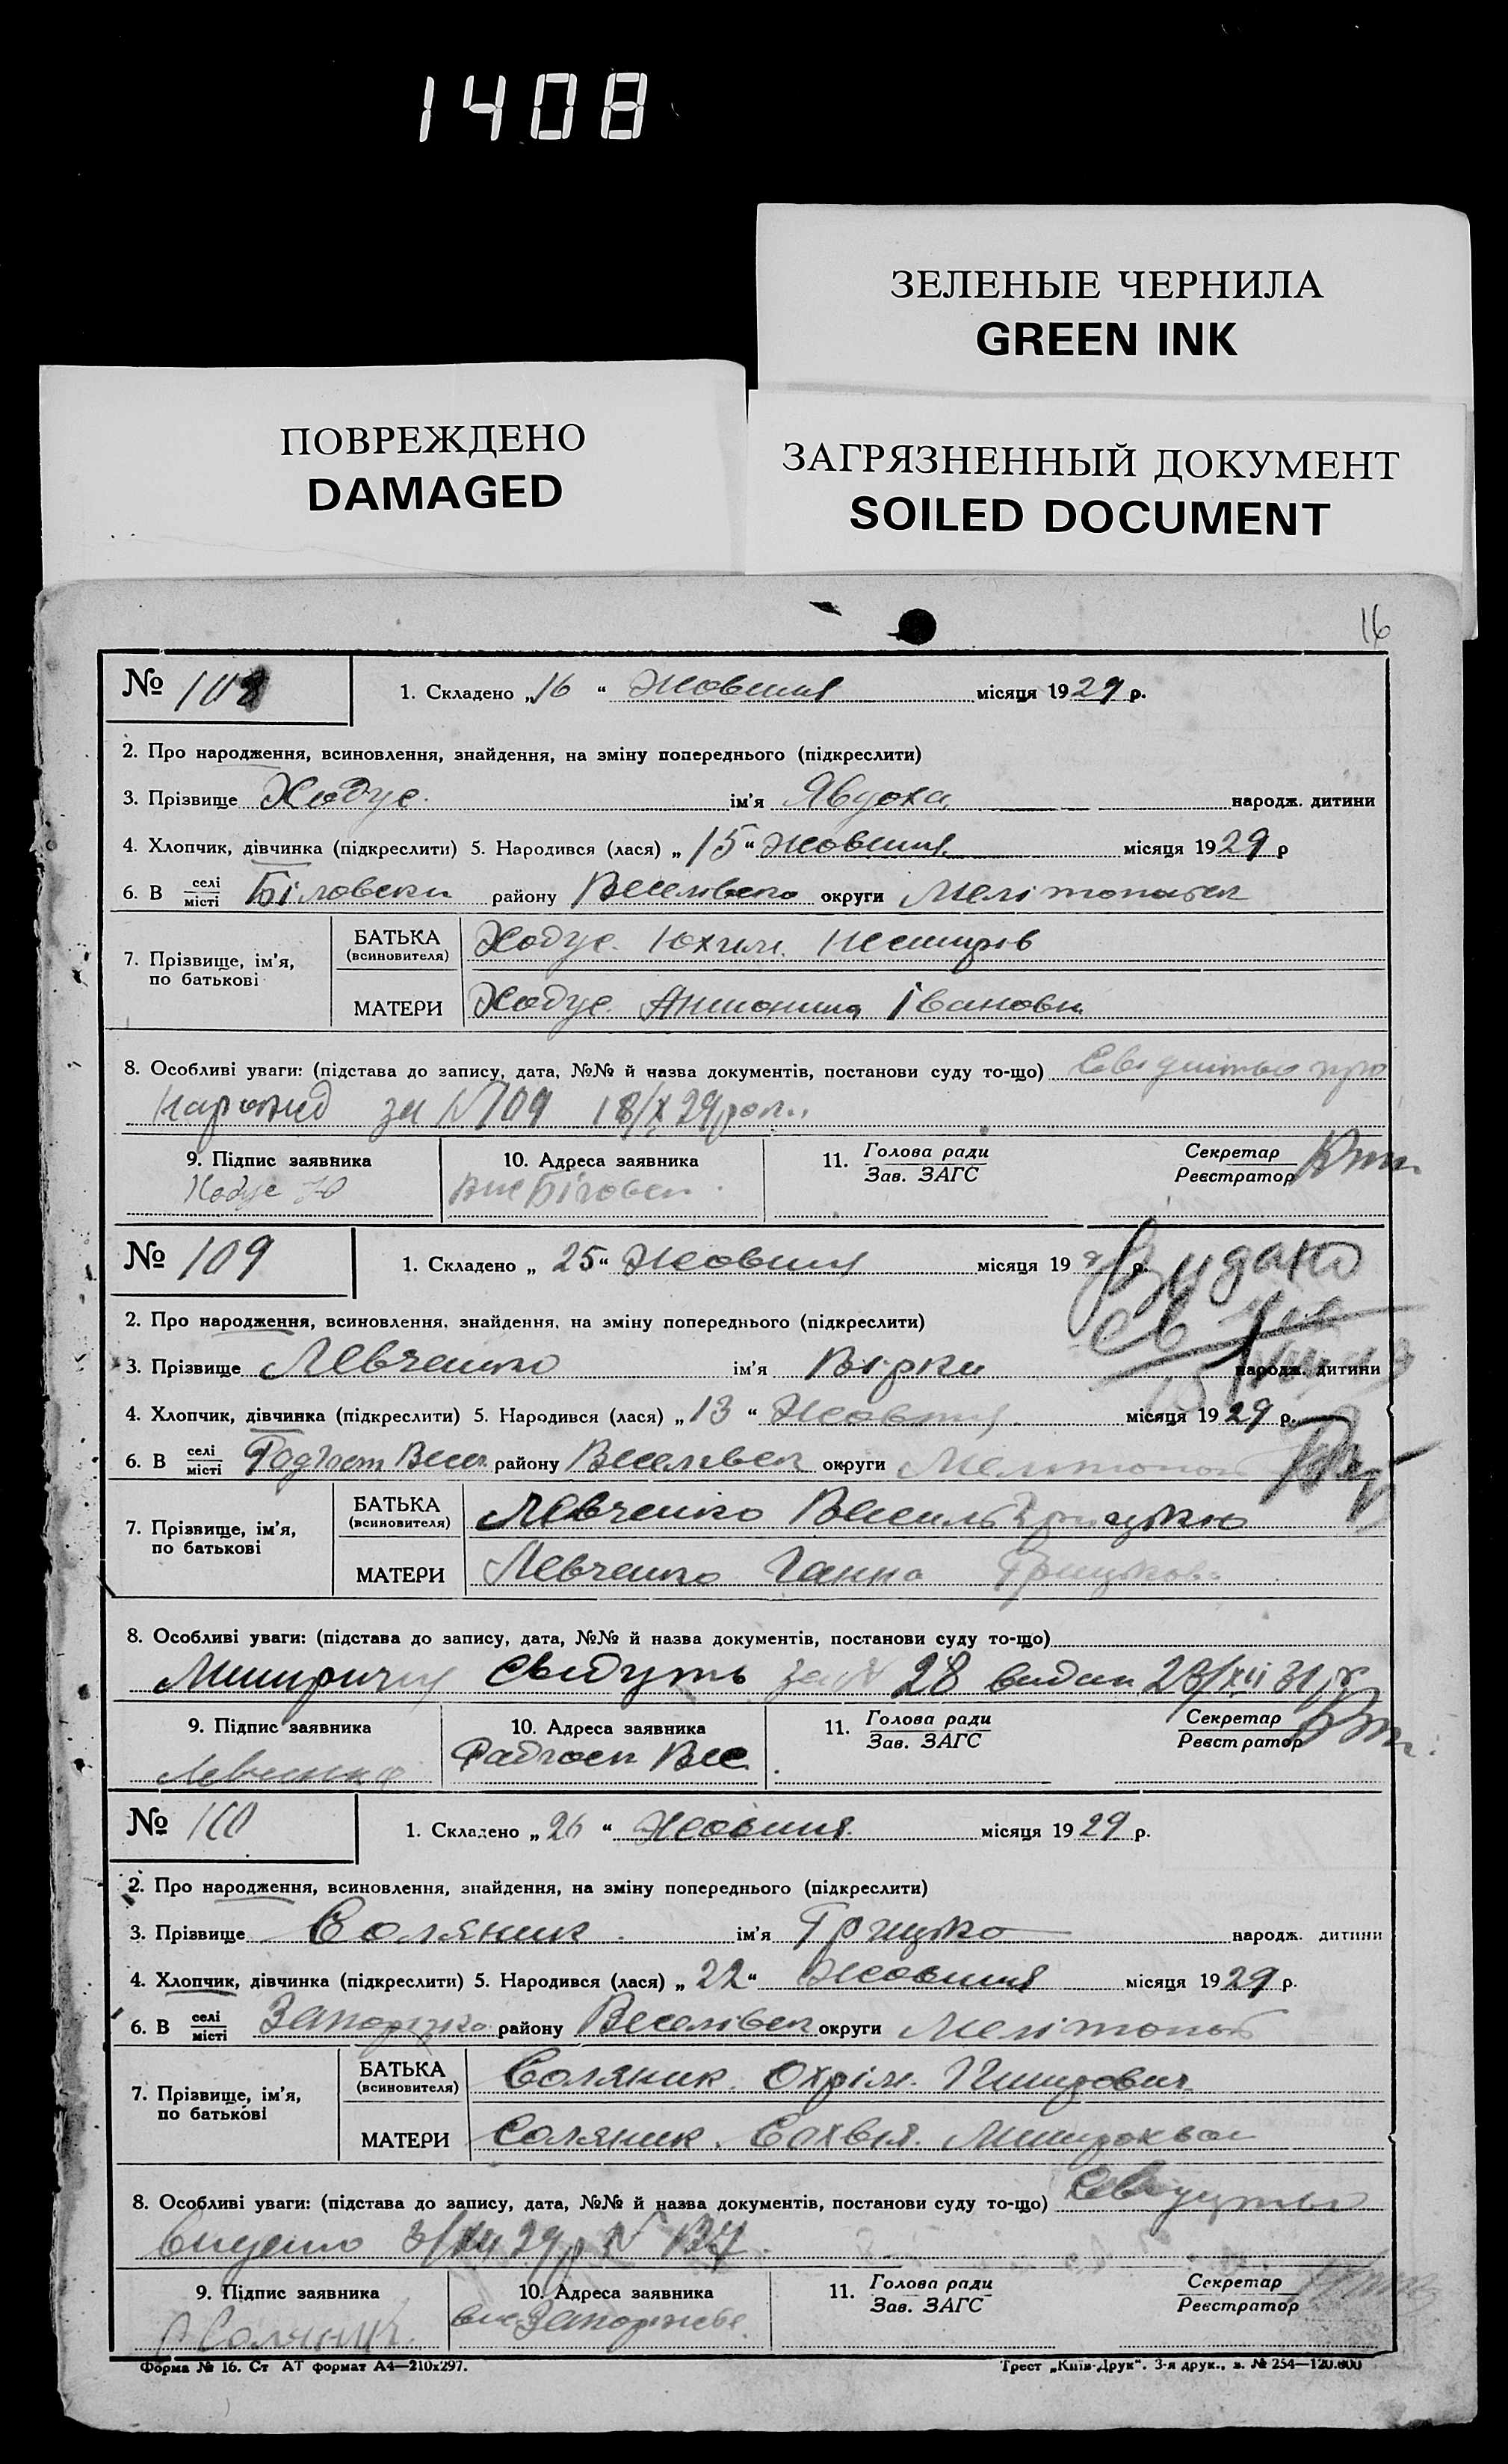 1408
ЗЕЛЕНЫЕ ЧЕРНИЛА
GREEN INK
ПОВРЕЖДЕНО
DAMAGED
ЗАГРЯЗНЕННЫЙ ДОКУМЕНТ
SOILED DOCUMENT
16
№ 108 1. Складено „16“ Жовтня місяця 1929 р.
2. Про народження, всиновлення, знайдення, на зміну попереднього (підкреслити)
3. Прізвище Ходус ім'я Явдоха народж. дитини
4. Хлопчик, дівчинка (підкреслити) 5. Народився (лася) „15“ жовтня місяця 1929 р
6. В селі/місті району округи
7. Прізвище, ім'я, по батькові
БАТЬКА (всиновителя) Ходус Юхим
МАТЕРИ Ходус Антонина Івановн
8. Особливі уваги: (підстава до запису, дата, №№ й назва документів, постанови суду то-що) про
народж за №109 18/X 29
9. Підпис заявника 10. Адреса заявника 11. Голова ради/Зав. ЗАГС Секретар/Реєстратор
Ходус Ю
№ 109 1. Складено „25“ Жовтня місяця 19 р.
Видано
2. Про народження, всиновлення, знайдення, на зміну попереднього (підкреслити)
3. Прізвище Левченко ім'я Вірки народж. дитини
4. Хлопчик, дівчинка (підкреслити) 5. Народився (лася) „13“ Жовтня місяця 1929 р.
6. В селі/місті Радгосп Весел району Веселівськ округи
7. Прізвище, ім'я, по батькові
БАТЬКА (всиновителя) Левченко Василь
МАТЕРИ Левченко Ганна
8. Особливі уваги: (підстава до запису, дата, №№ й назва документів, постанови суду то-що)
28 видан 23/XII 31 р
9. Підпис заявника 10. Адреса заявника 11. Голова ради/Зав. ЗАГС Секретар/Реєстратор
Радгосп Вес
№ 110 1. Складено „26“ Жовтня місяця 1929 р.
2. Про народження, всиновлення, знайдення, на зміну попереднього (підкреслити)
3. Прізвище Соляник ім'я Грицько народж. дитини
4. Хлопчик, дівчинка (підкреслити) 5. Народився (лася) „22“ Жовтня місяця 1929 р.
6. В селі/місті району Веселівськ округи
7. Прізвище, ім'я, по батькові
БАТЬКА (всиновителя) Соляник Охрім
МАТЕРИ Соляник Сохвія
8. Особливі уваги: (підстава до запису, дата, №№ й назва документів, постанови суду то-що)
29 р №
9. Підпис заявника 10. Адреса заявника 11. Голова ради/Зав. ЗАГС Секретар/Реєстратор
Соляник
Форма № 16. Ст АТ формат А4—210х297. Трест „Київ-Друк“. 3-я друк., з. № 254—120.000